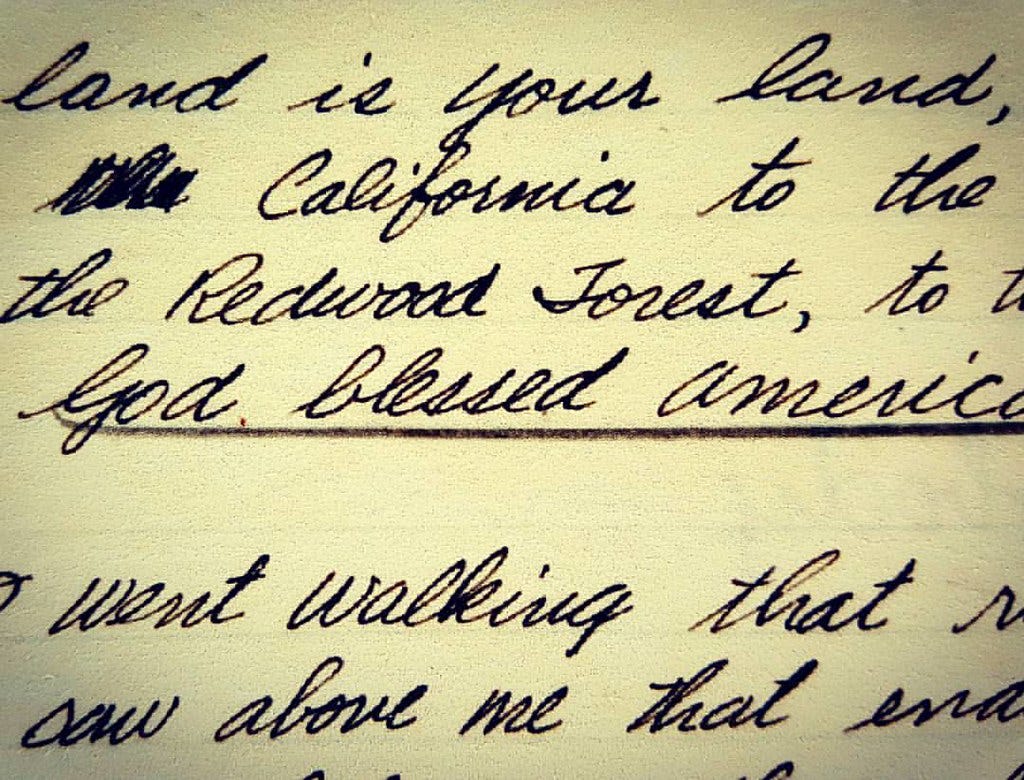 land is your land,
California to the
the Redwood Forest, to
God blessed America
went walking that
saw above me that